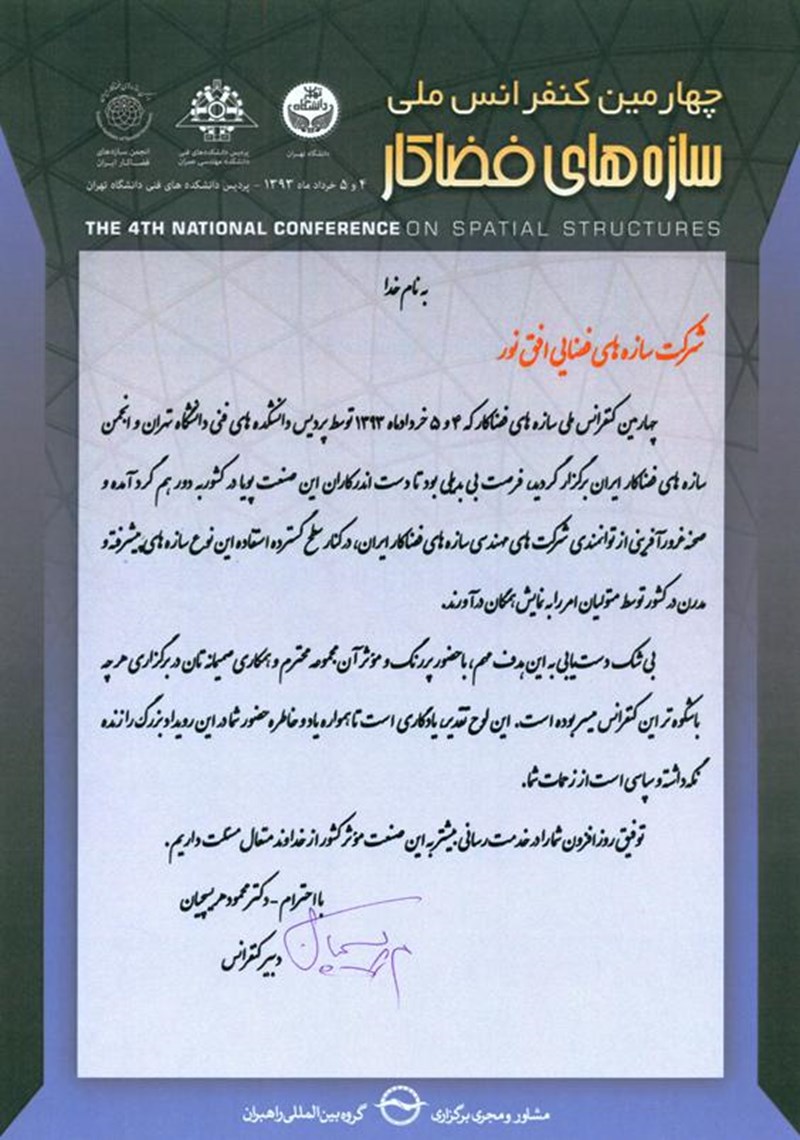 چهارمین کنفرانس ملی
سازه‌های فضاکار
دانشگاه تهران
پردیس دانشکده‌های فنی
دانشکده مهندسی عمران
انجمن سازه‌های
فضاکار ایران
۴ و ۵ خرداد ماه ۱۳۹۳ - پردیس دانشکده های فنی دانشگاه تهران
THE 4TH NATIONAL CONFERENCE ON SPATIAL STRUCTURES
به نام خدا
شرکت سازه های فضایی افق نور
چهارمین کنفرانس ملی سازه های فضاکار که ۴ و ۵ خردادماه ۱۳۹۳ توسط پردیس دانشکده های فنی دانشگاه تهران و انجمن
سازه های فضاکار ایران برگزار گردید، فرصت بی بدیلی بود تا دست اندرکاران این صنعت پویا در کشور به دور هم گرد آمده و
صحنه غرورآفرینی از توانمندی شرکت های مهندسی سازه های فضاکار ایران، در کنار سطح گسترده استفاده این نوع سازه های پیشرفته و
مدرن در کشور توسط متولیان امر را به نمایش همگان درآورند.
بی شک دست‌یابی به این هدف مهم، با حضور پررنگ و مؤثر آن مجموعه محترم و همکاری صمیمانه تان در برگزاری هر چه
باشکوه تر این کنفرانس میسر بوده است. این لوح تقدیر، یادگاری است تا همواره یاد و خاطره حضور شما در این رویداد بزرگ را زنده
نگه داشته و سپاسی است از زحمات شما.
توفیق روزافزون شما را در خدمت رسانی بیشتر به این صنعت مؤثر کشور از خداوند متعال مسئلت داریم.
با احترام - دکتر محمود هریسچیان
دبیر کنفرانس
مشاور و مجری برگزاری گروه بین‌المللی راهبران